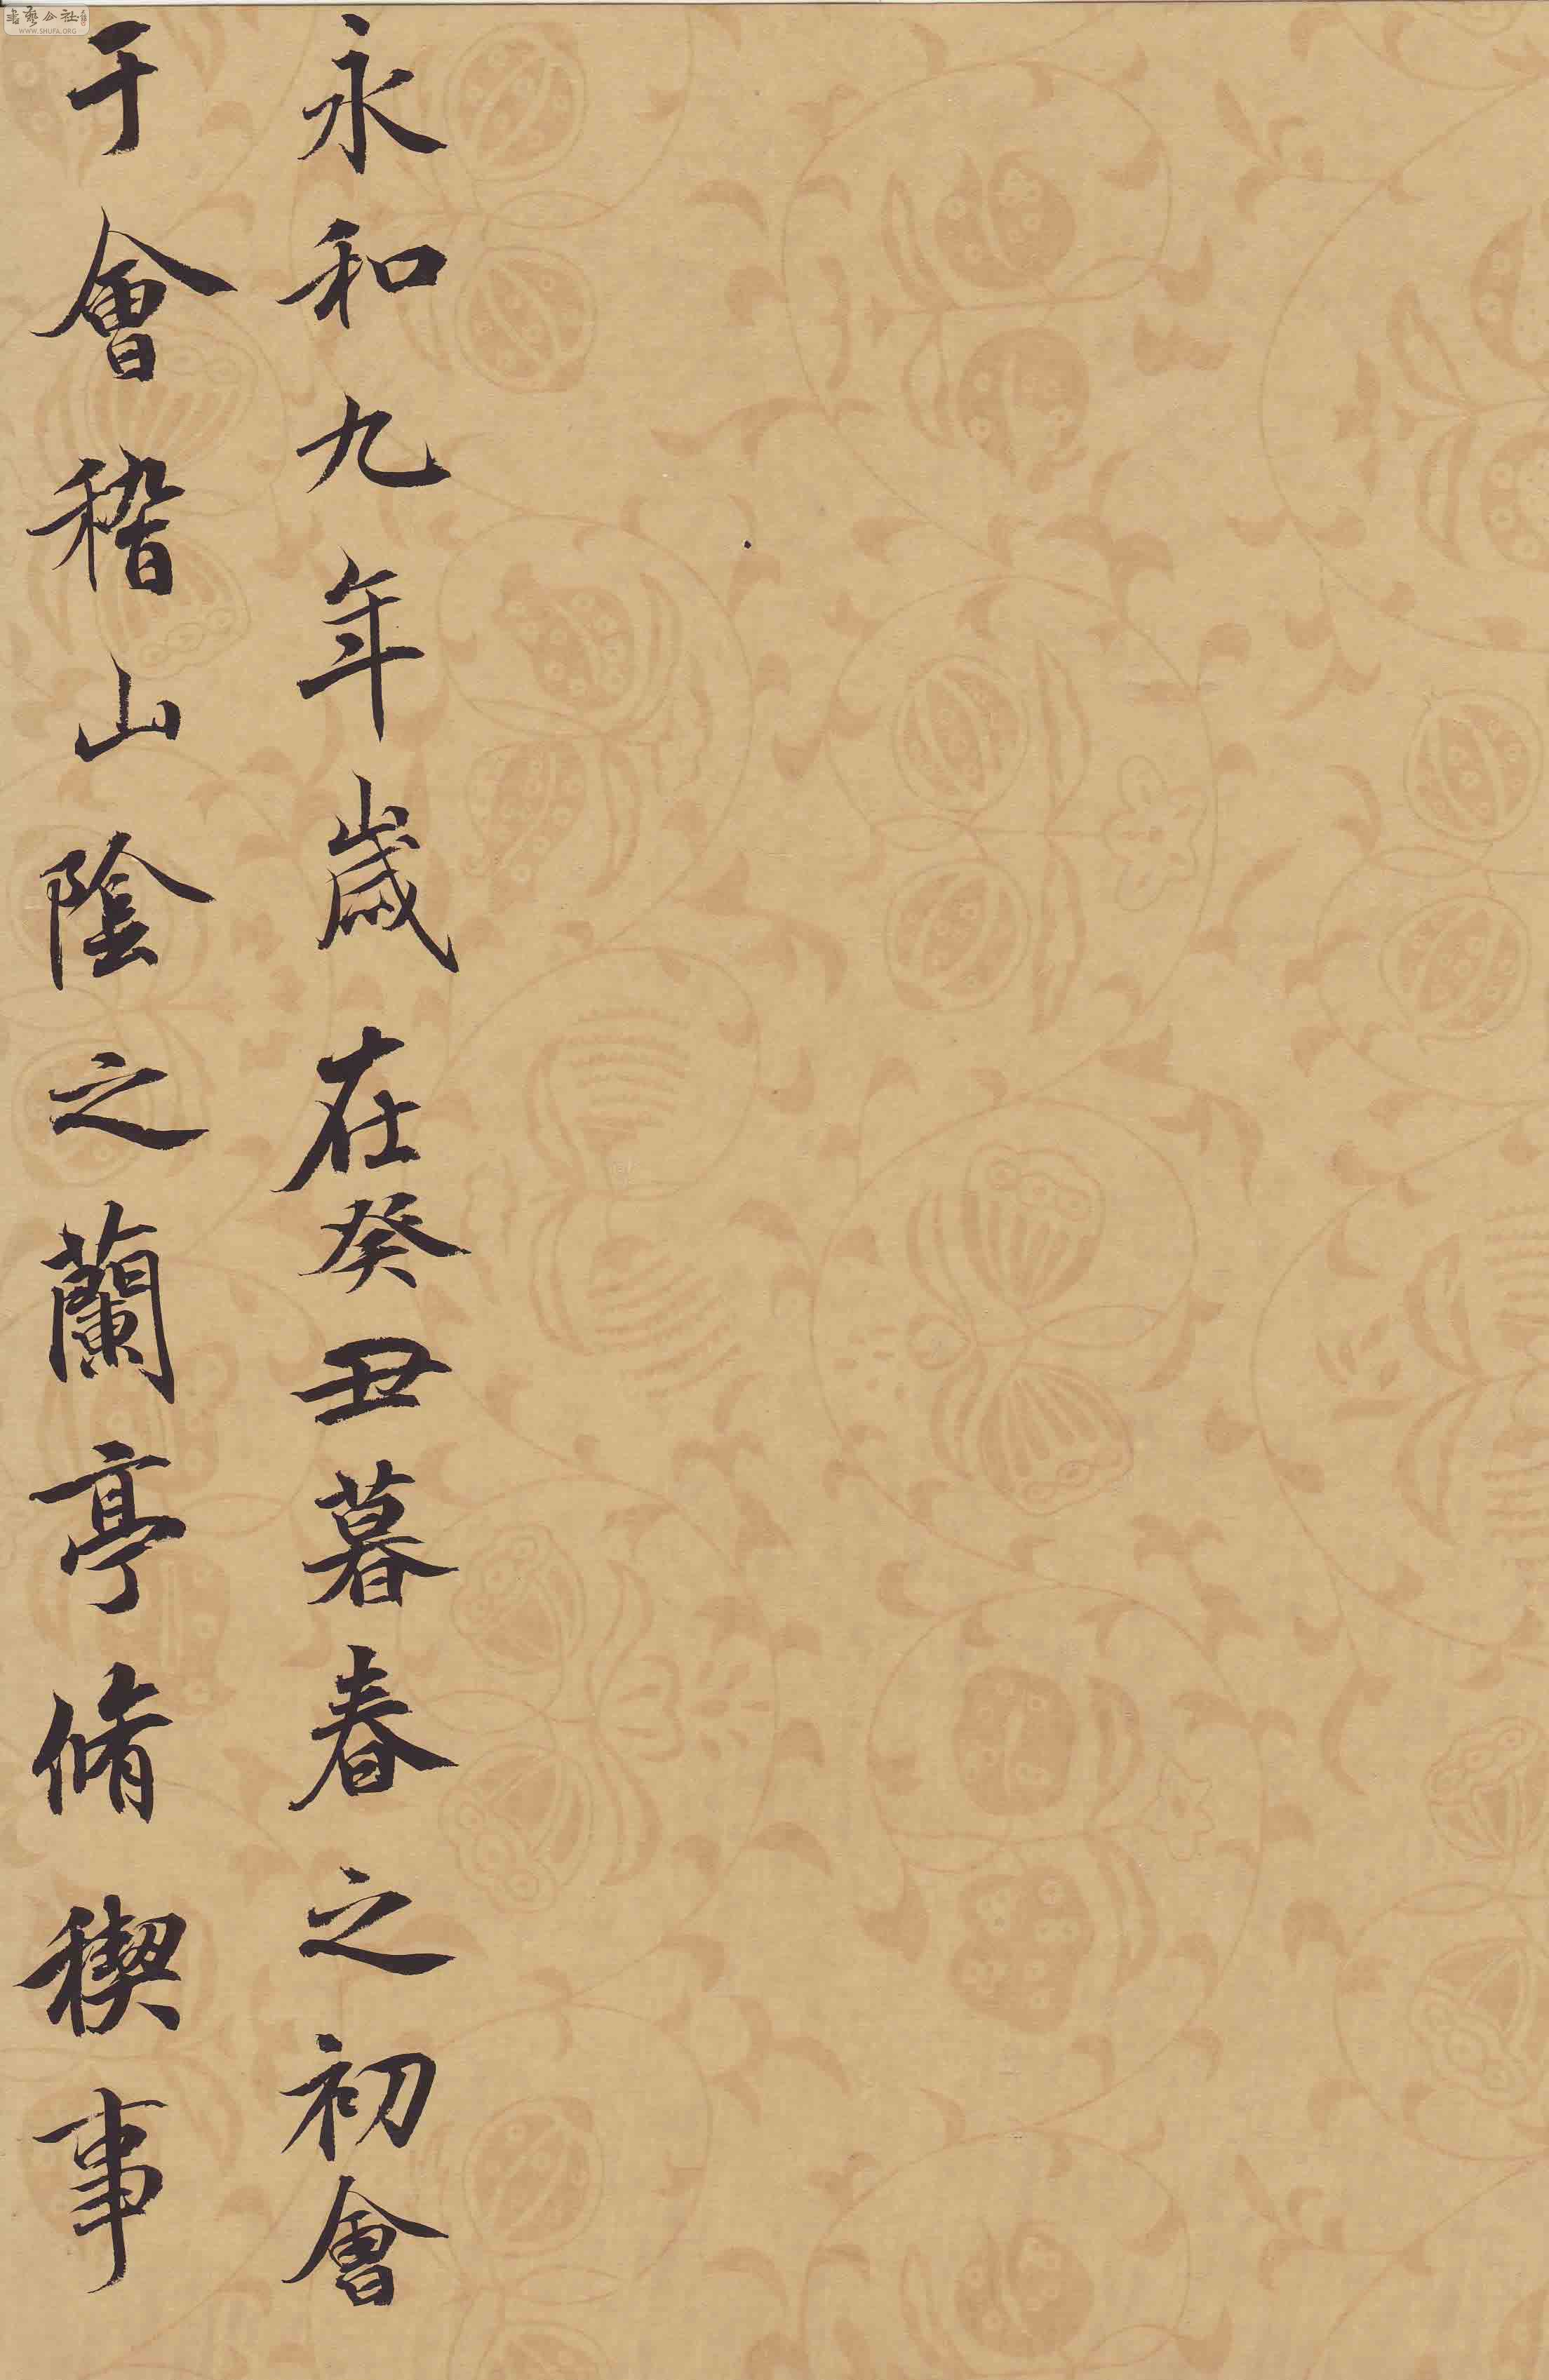 永和九年歲在癸丑暮春之初會
于會稽山陰之蘭亭脩稧事
書藝公社
WWW.SHUFA.ORG